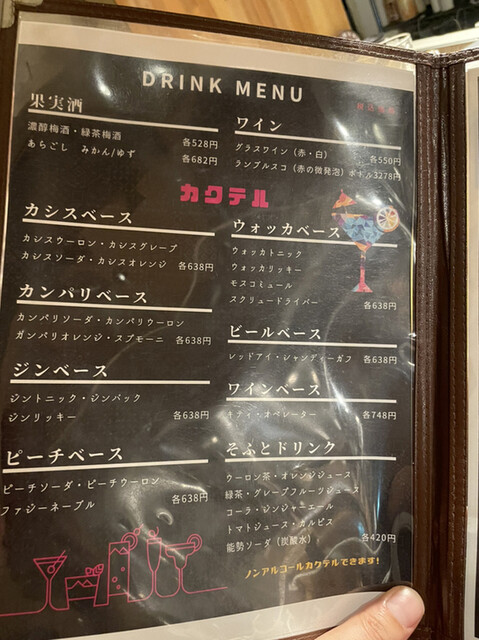 DRINK MENU
税込価格
果実酒
濃醇梅酒・緑茶梅酒 各528円
あらごし みかん/ゆず 各682円
ワイン
グラスワイン（赤・白） 各550円
ランブルスコ（赤の微発泡）ボトル3278円
カクテル
カシスベース
カシスウーロン・カシスグレープ
カシスソーダ・カシスオレンジ 各638円
ウォッカベース
ウォッカトニック
ウォッカリッキー
モスコミュール
スクリュードライバー 各638円
カンパリベース
カンパリソーダ・カンパリウーロン
カンパリオレンジ・スプモーニ 各638円
ビールベース
レッドアイ・シャンディーガフ 各638円
ジンベース
ジントニック・ジンバック
ジンリッキー 各638円
ワインベース
キティ・オペレーター 各748円
ピーチベース
ピーチソーダ・ピーチウーロン
ファジーネーブル 各638円
そふとドリンク
ウーロン茶・オレンジジュース
緑茶・グレープフルーツジュース
コーラ・ジンジャーエール
トマトジュース・カルピス
能勢ソーダ（炭酸水） 各420円
ノンアルコールカクテルできます!